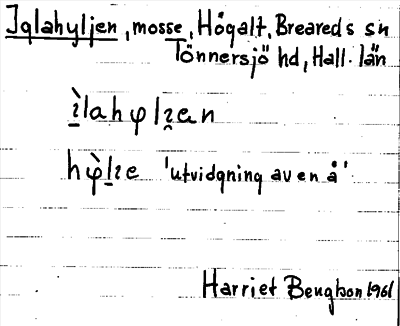 Iglahyljen, mosse, Högalt, Breareds sn
Tönnersjö hd, Hall. län
'utvidgning av en å'
Harriet Bengtson 1961